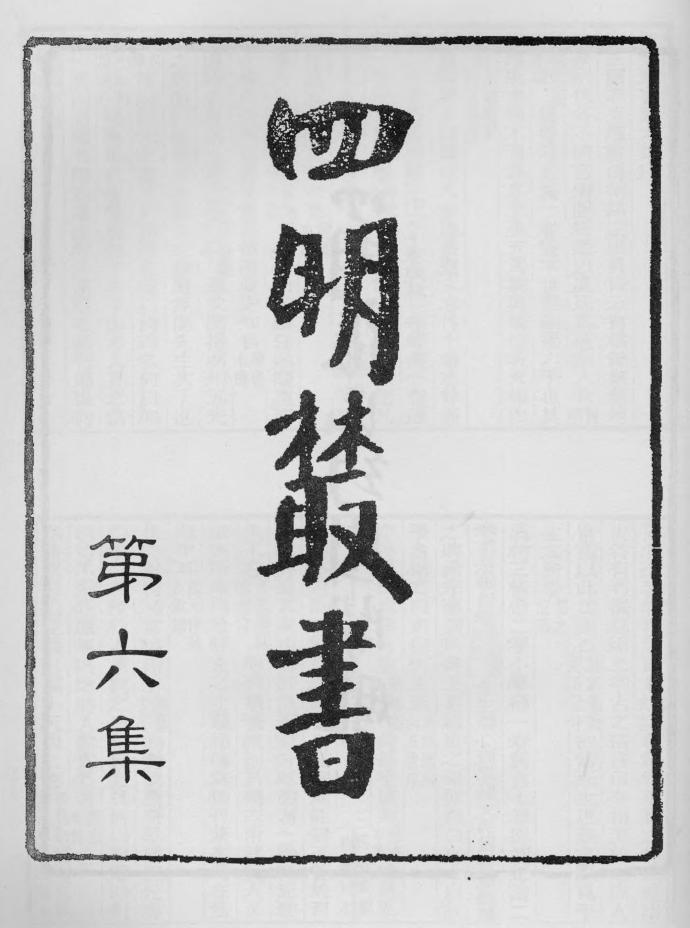 四明叢書
第六集